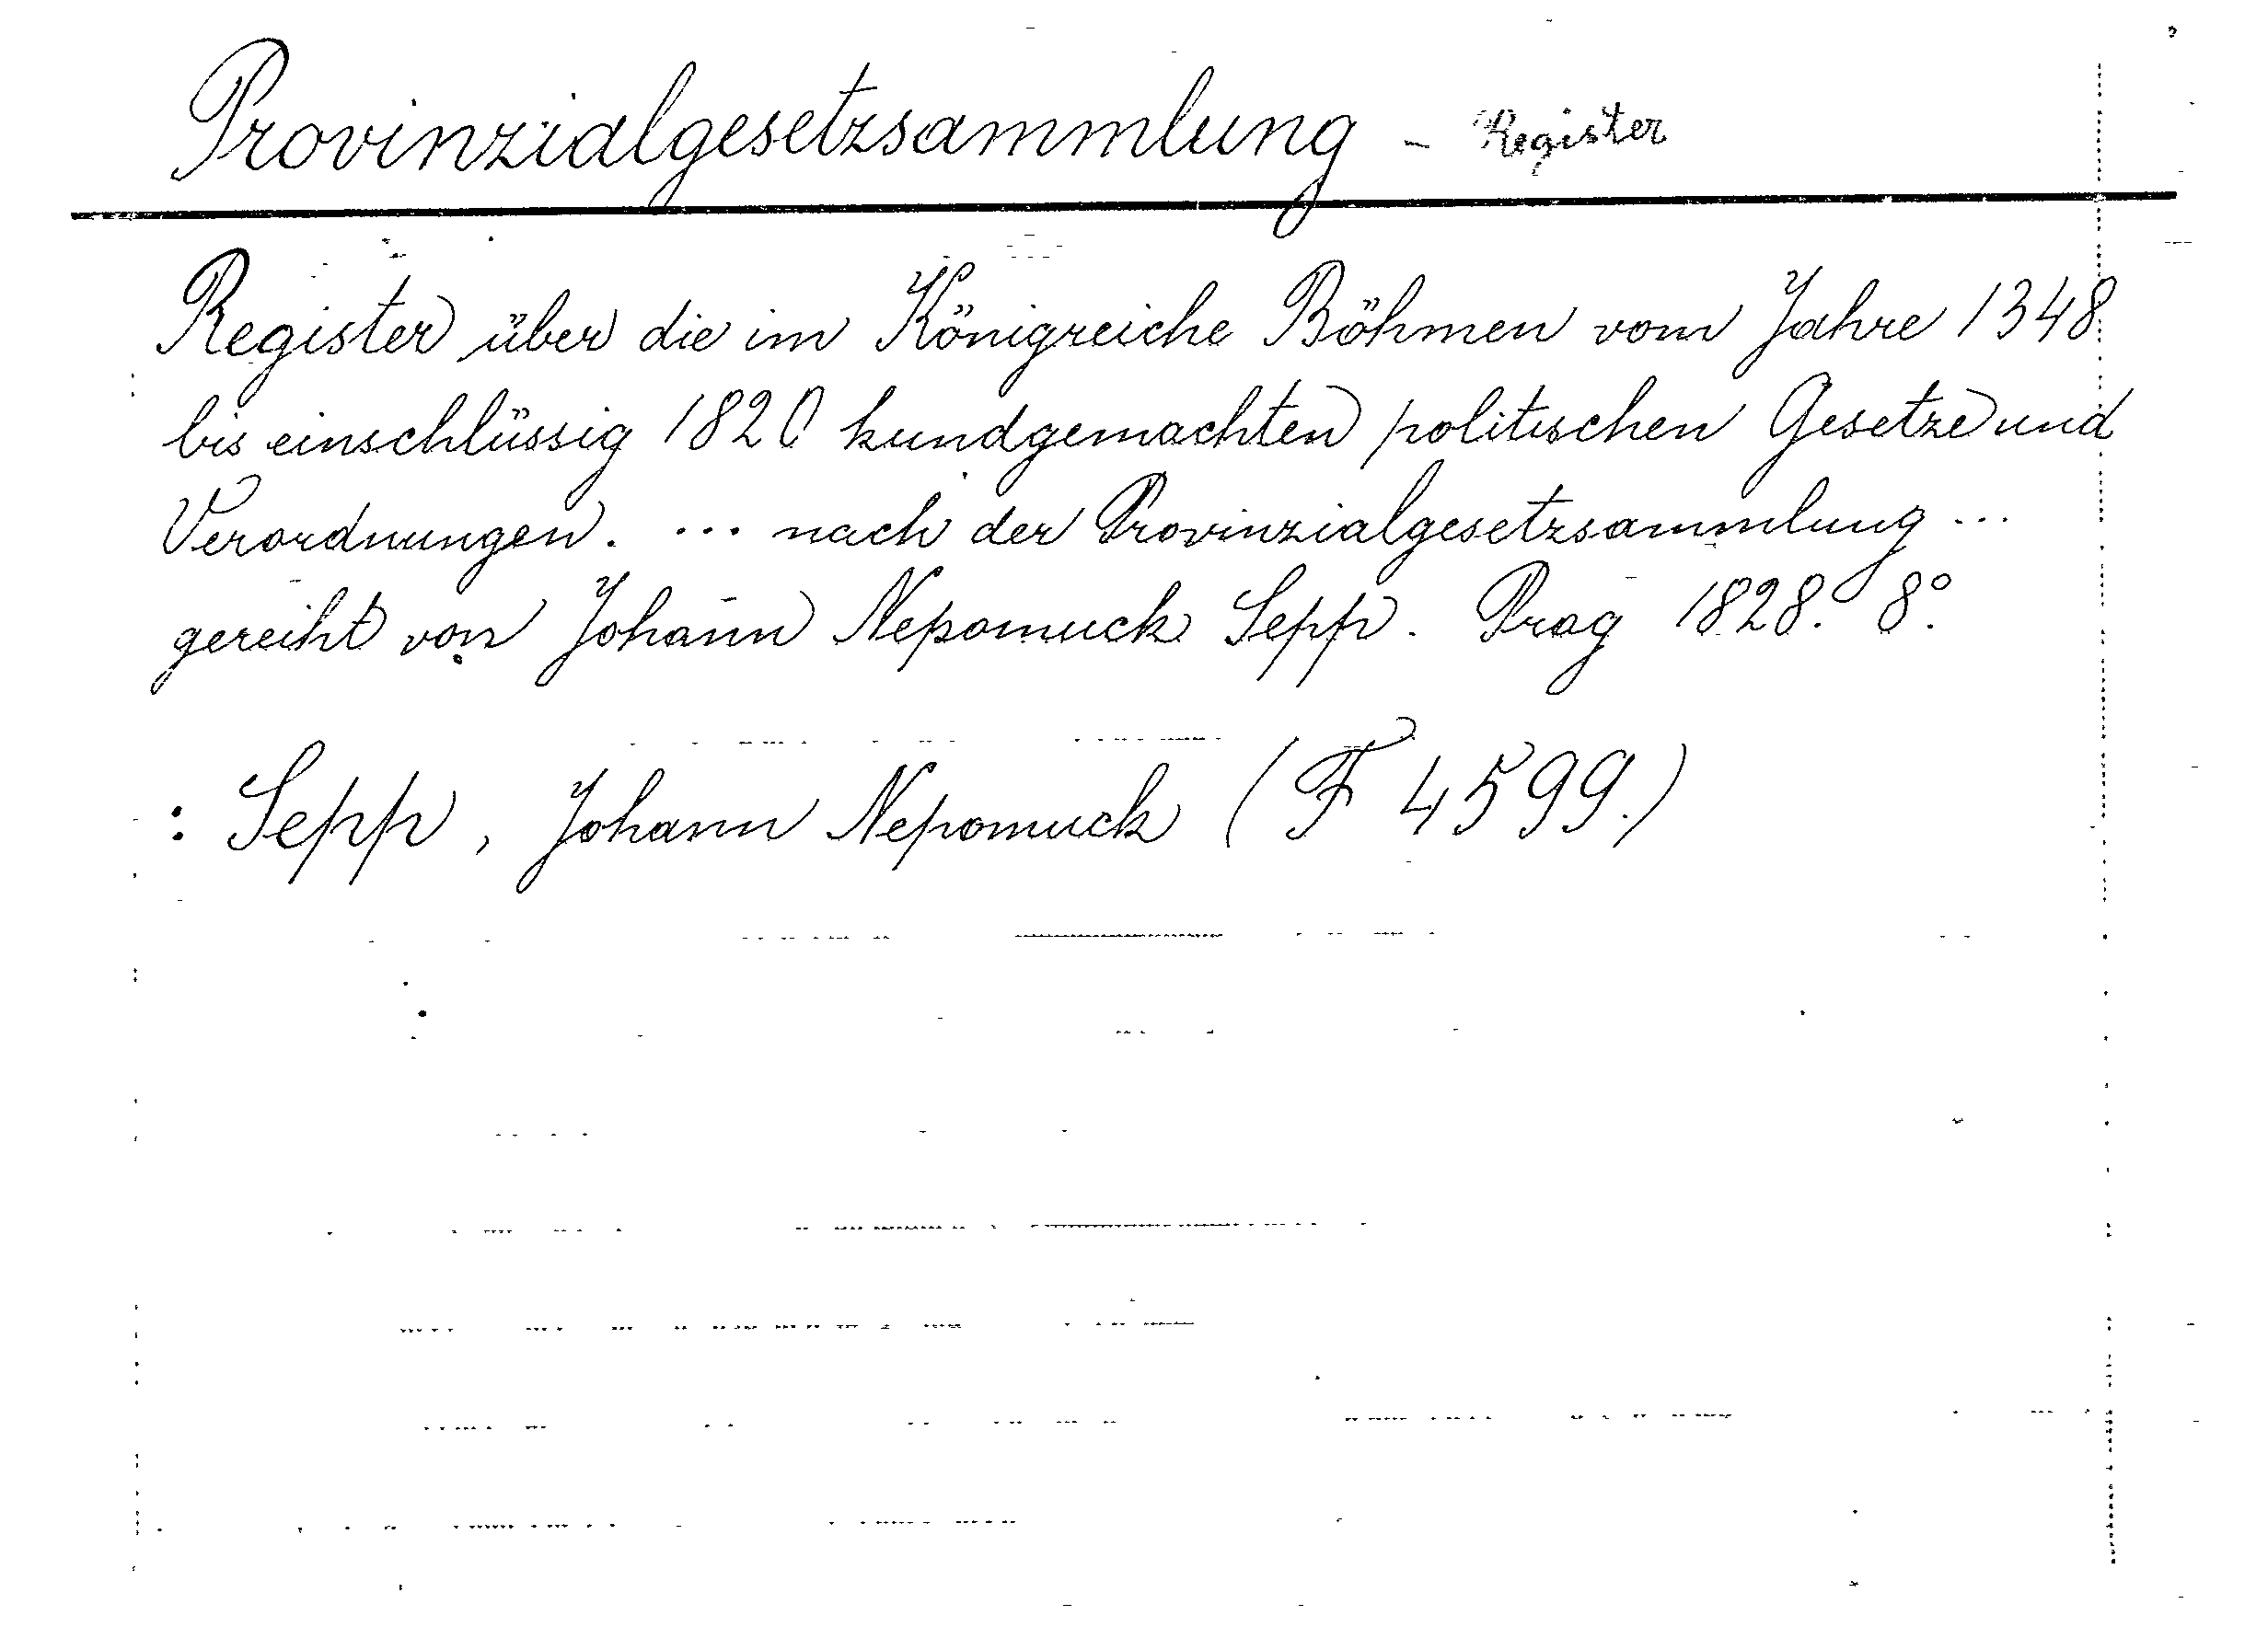 Provinzialgesetzsammlung - Register
Register über die im Königreiche Böhmen vom Jahre 1348
bis einschlüssig 1820 kundgemachten politischen Gesetze und
Verordnungen. ... nach der Provinzialgesetzsammlung ...
gereiht von Johann Nepomuck Sepp. Prag 1828. 8°.
: Sepp, Johann Nepomuck (F 4599.)